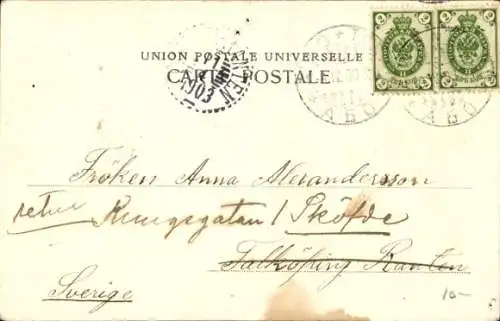 UNION POSTALE UNIVERSELLE
CARTE POSTALE
2 2 2 2
1903
АБО
Fröken Anna Alexandersson
retur Kungsgatan 1 Sköfde
Falköping Ranten
Sverige
10-